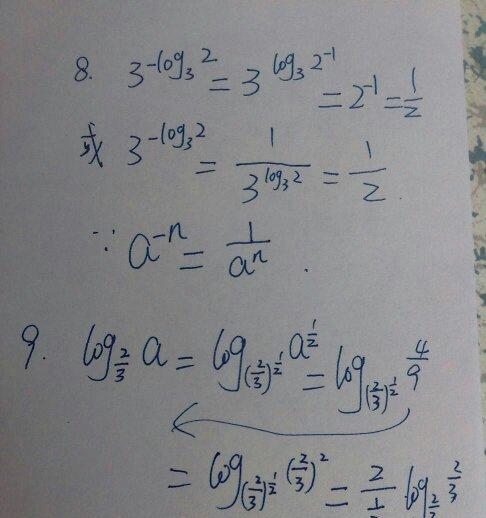 8. 3^{-log_3 2} = 3^{log_3 2^{-1}} = 2^{-1} = \frac{1}{2}
或 3^{-log_3 2} = \frac{1}{3^{log_3 2}} = \frac{1}{2}.
∵ a^{-n} = \frac{1}{a^n}.
9. log_{\frac{2}{3}} a = log_{(\frac{2}{3})^{\frac{1}{2}}} a^{\frac{1}{2}} = log_{(\frac{2}{3})^{\frac{1}{2}}} \frac{4}{9}
= log_{(\frac{2}{3})^{\frac{1}{2}}} (\frac{2}{3})^2 = \frac{2}{\frac{1}{2}} log_{\frac{2}{3}} \frac{2}{3}